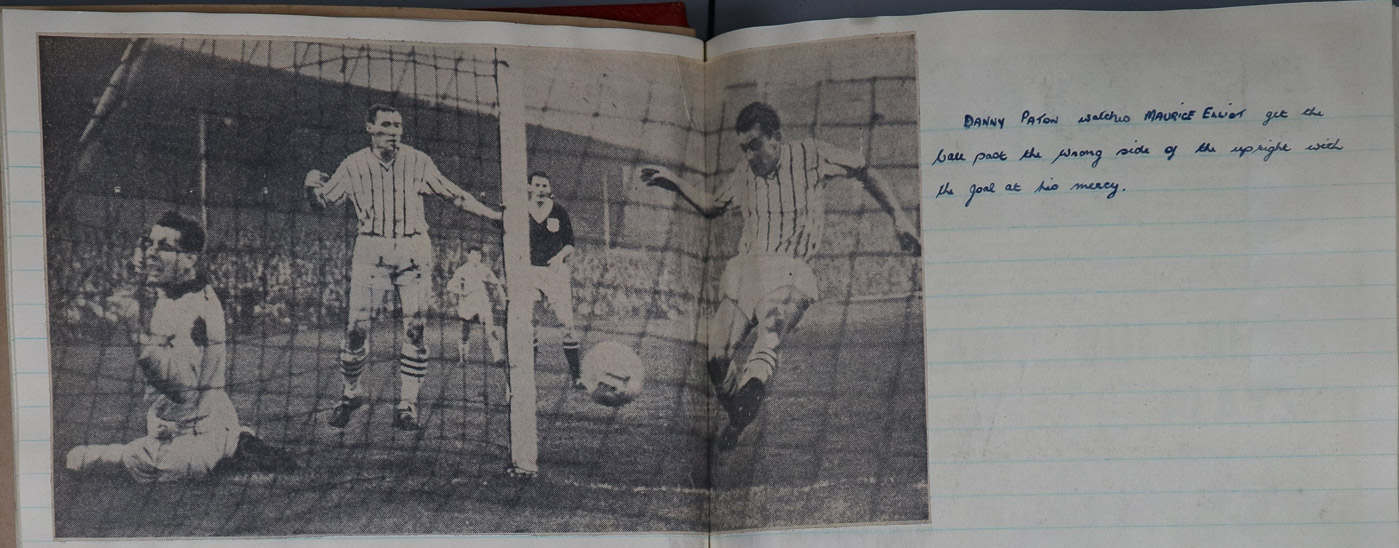 DANNY PATON watches MAURICE ELLIOT get the
ball past the wrong side of the upright with
the goal at his mercy.